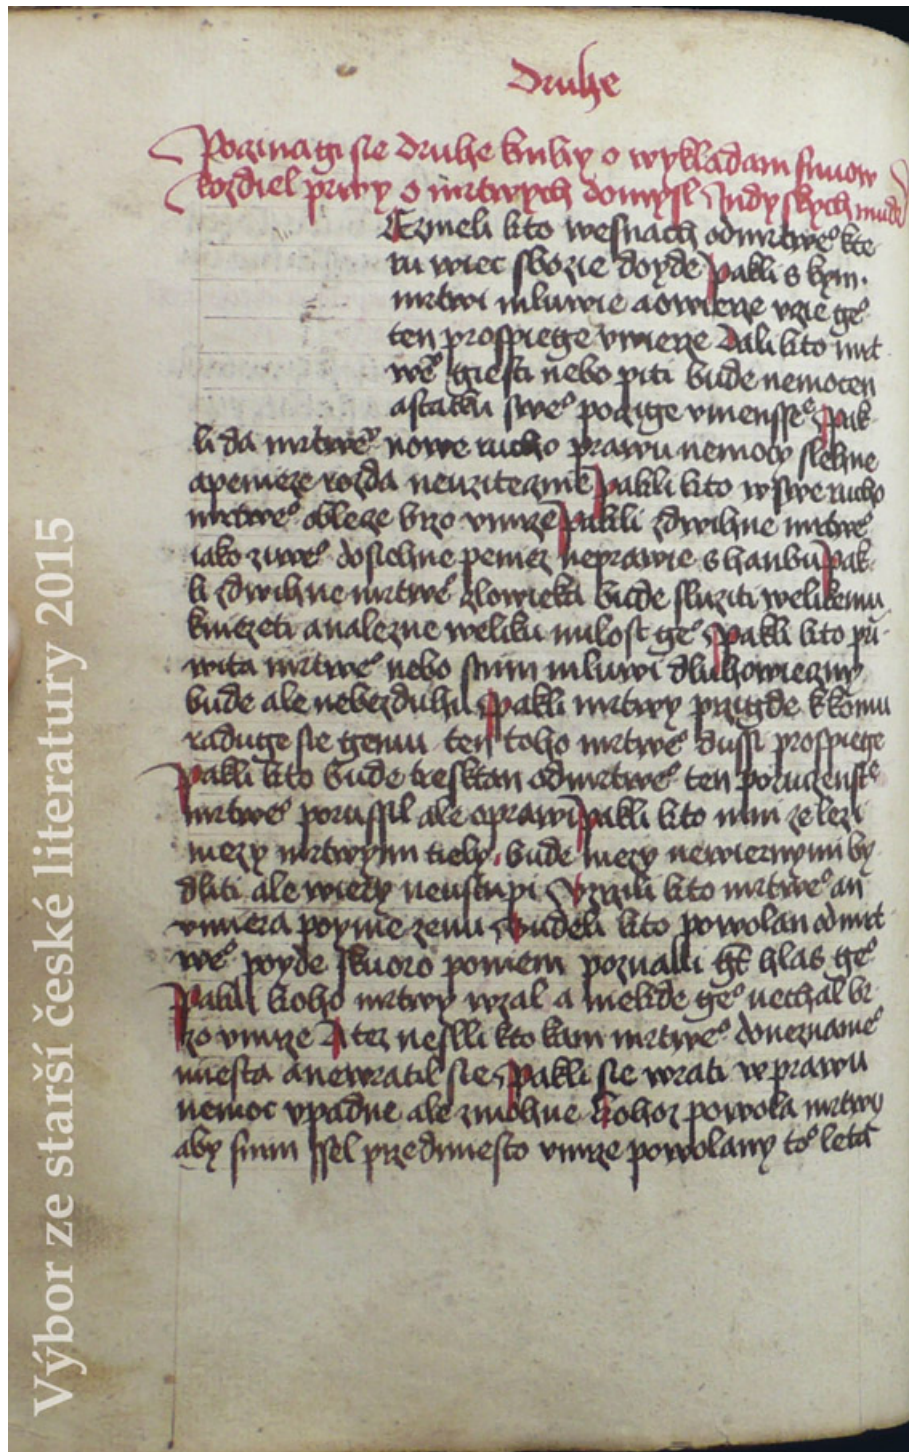 Druhe
Poczinagi sie druhe knihy o wykladani snuow
Rozdiel prwy o mrtwych domysl Indyskych mudr
Ezmeli kto wesnach odmrtweº kte
ru wiec sbozie doyde Pakli s kym
mrtwi mluwie aowierze vzie geº
ten prospiege vwierze Dali kto mrt
weº giesti nebo piti bude nemocen
astatku sweº pozige vmensseº Pak
li da mrtweº nowe rucho prawu nemocy slehne
apenieze rozda neuzitecznie Pakli kto w swe rucho
mrtweº oblecze brzo vmrze Pakli zdwihne mrtweº
iako ziweº dosiehne peniez neprawie s hanbu Pak
li zdwihne mrtweº czlowieka bude sluziti welikemu
kniezeti analezne weliku milost geº Pakli kto przi
wita mrtweº nebo snim mluwi dluhowieczny
bude ale nebezduhu Pakli mrtwy przigde kkomu
radugze sie gemu ten toho mrtweº dussi prospiege
Pakli kto bude tresktan odmrtweº ten poruczenstº
mrtweº porussil ale oprawi Pakli kto mni ze lezi
mezy mrtwymi tiely bude mezy newiernymi by
dliti ale wiery neustupi Vzrzili kto mrtweº an
vmiera poyme zenu Budeli kto powolan od mrt
weº poyde skuoro poniem poznalli gt hlas geº
Pakli koho mrtwy wzal a nekde geº nechal br
zo vmrze A tez neslli kto kam mrtweº doneznameº
miesta anewratil sie Pakli sie wrati w prawu
nemoc vpadne ale zmohne Kohoz powola mrtwy
aby snim ssel przedmiesto vmrze powolany toº leta
Výbor ze starší české literatury 2015